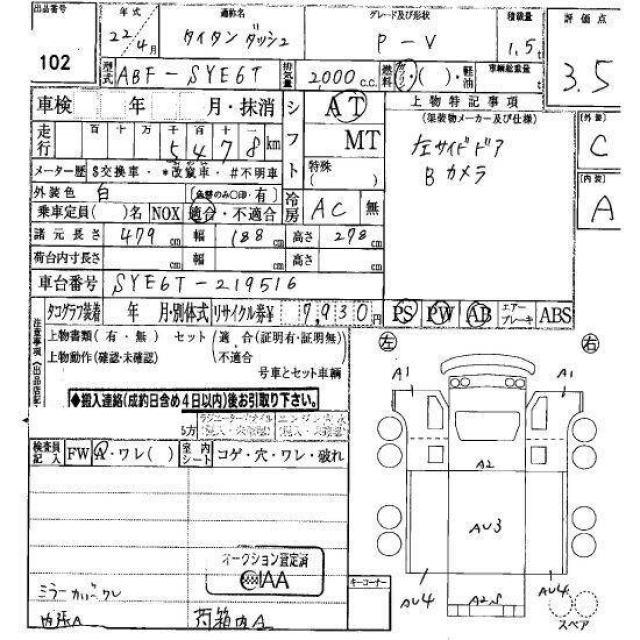 出品番号 102
年式 22/4月
通称名 タイタンダッシュ
グレード及び形状 P-V
積載量 1.5t
評価点 3.5
型式 ABF-SYE6T
排気量 2,000c.c.
燃料 ガソリン・( )・軽油
車輌総重量 t
車検 年 月・抹消
シフト AT MT
上物特記事項
(架装物メーカー及び仕様)
左サイドドア
Bカメラ
外装 C
内装 A
走行 百 十 万 千 百 十 5478km
特殊 ( )
メーター歴 $交換車・*改竄車・#不明車
外装色 白 (色替のみ○印・有)
冷房 AC 無
乗車定員( )名 NOX 適合・不適合
諸元長さ 479cm 幅 188cm 高さ 278cm
荷台内寸長さ cm 幅 cm 高さ cm
車台番号 SYE6T-219516
タコグラフ装着 年 月・別体式 リサイクル券¥ 7,930円
PS PW AB エアーブレーキ ABS
注意事項(出品店記
上物書類(有・無) セット(適合(証明有・証明無)
上物動作(確認・未確認) 不適合
号車とセット車輌
◆搬入連絡(成約日含め4日以内)後お引取り下さい。
検査員記入 FW A・ワレ( ) 室内シート コゲ・穴・ワレ・破れ
オークション査定済
IAA
ミラーカバーワレ
内張A
荷箱内A
キーコーナー
左 右
A1 A1
A2
AU3
AU4 AU4
スペア